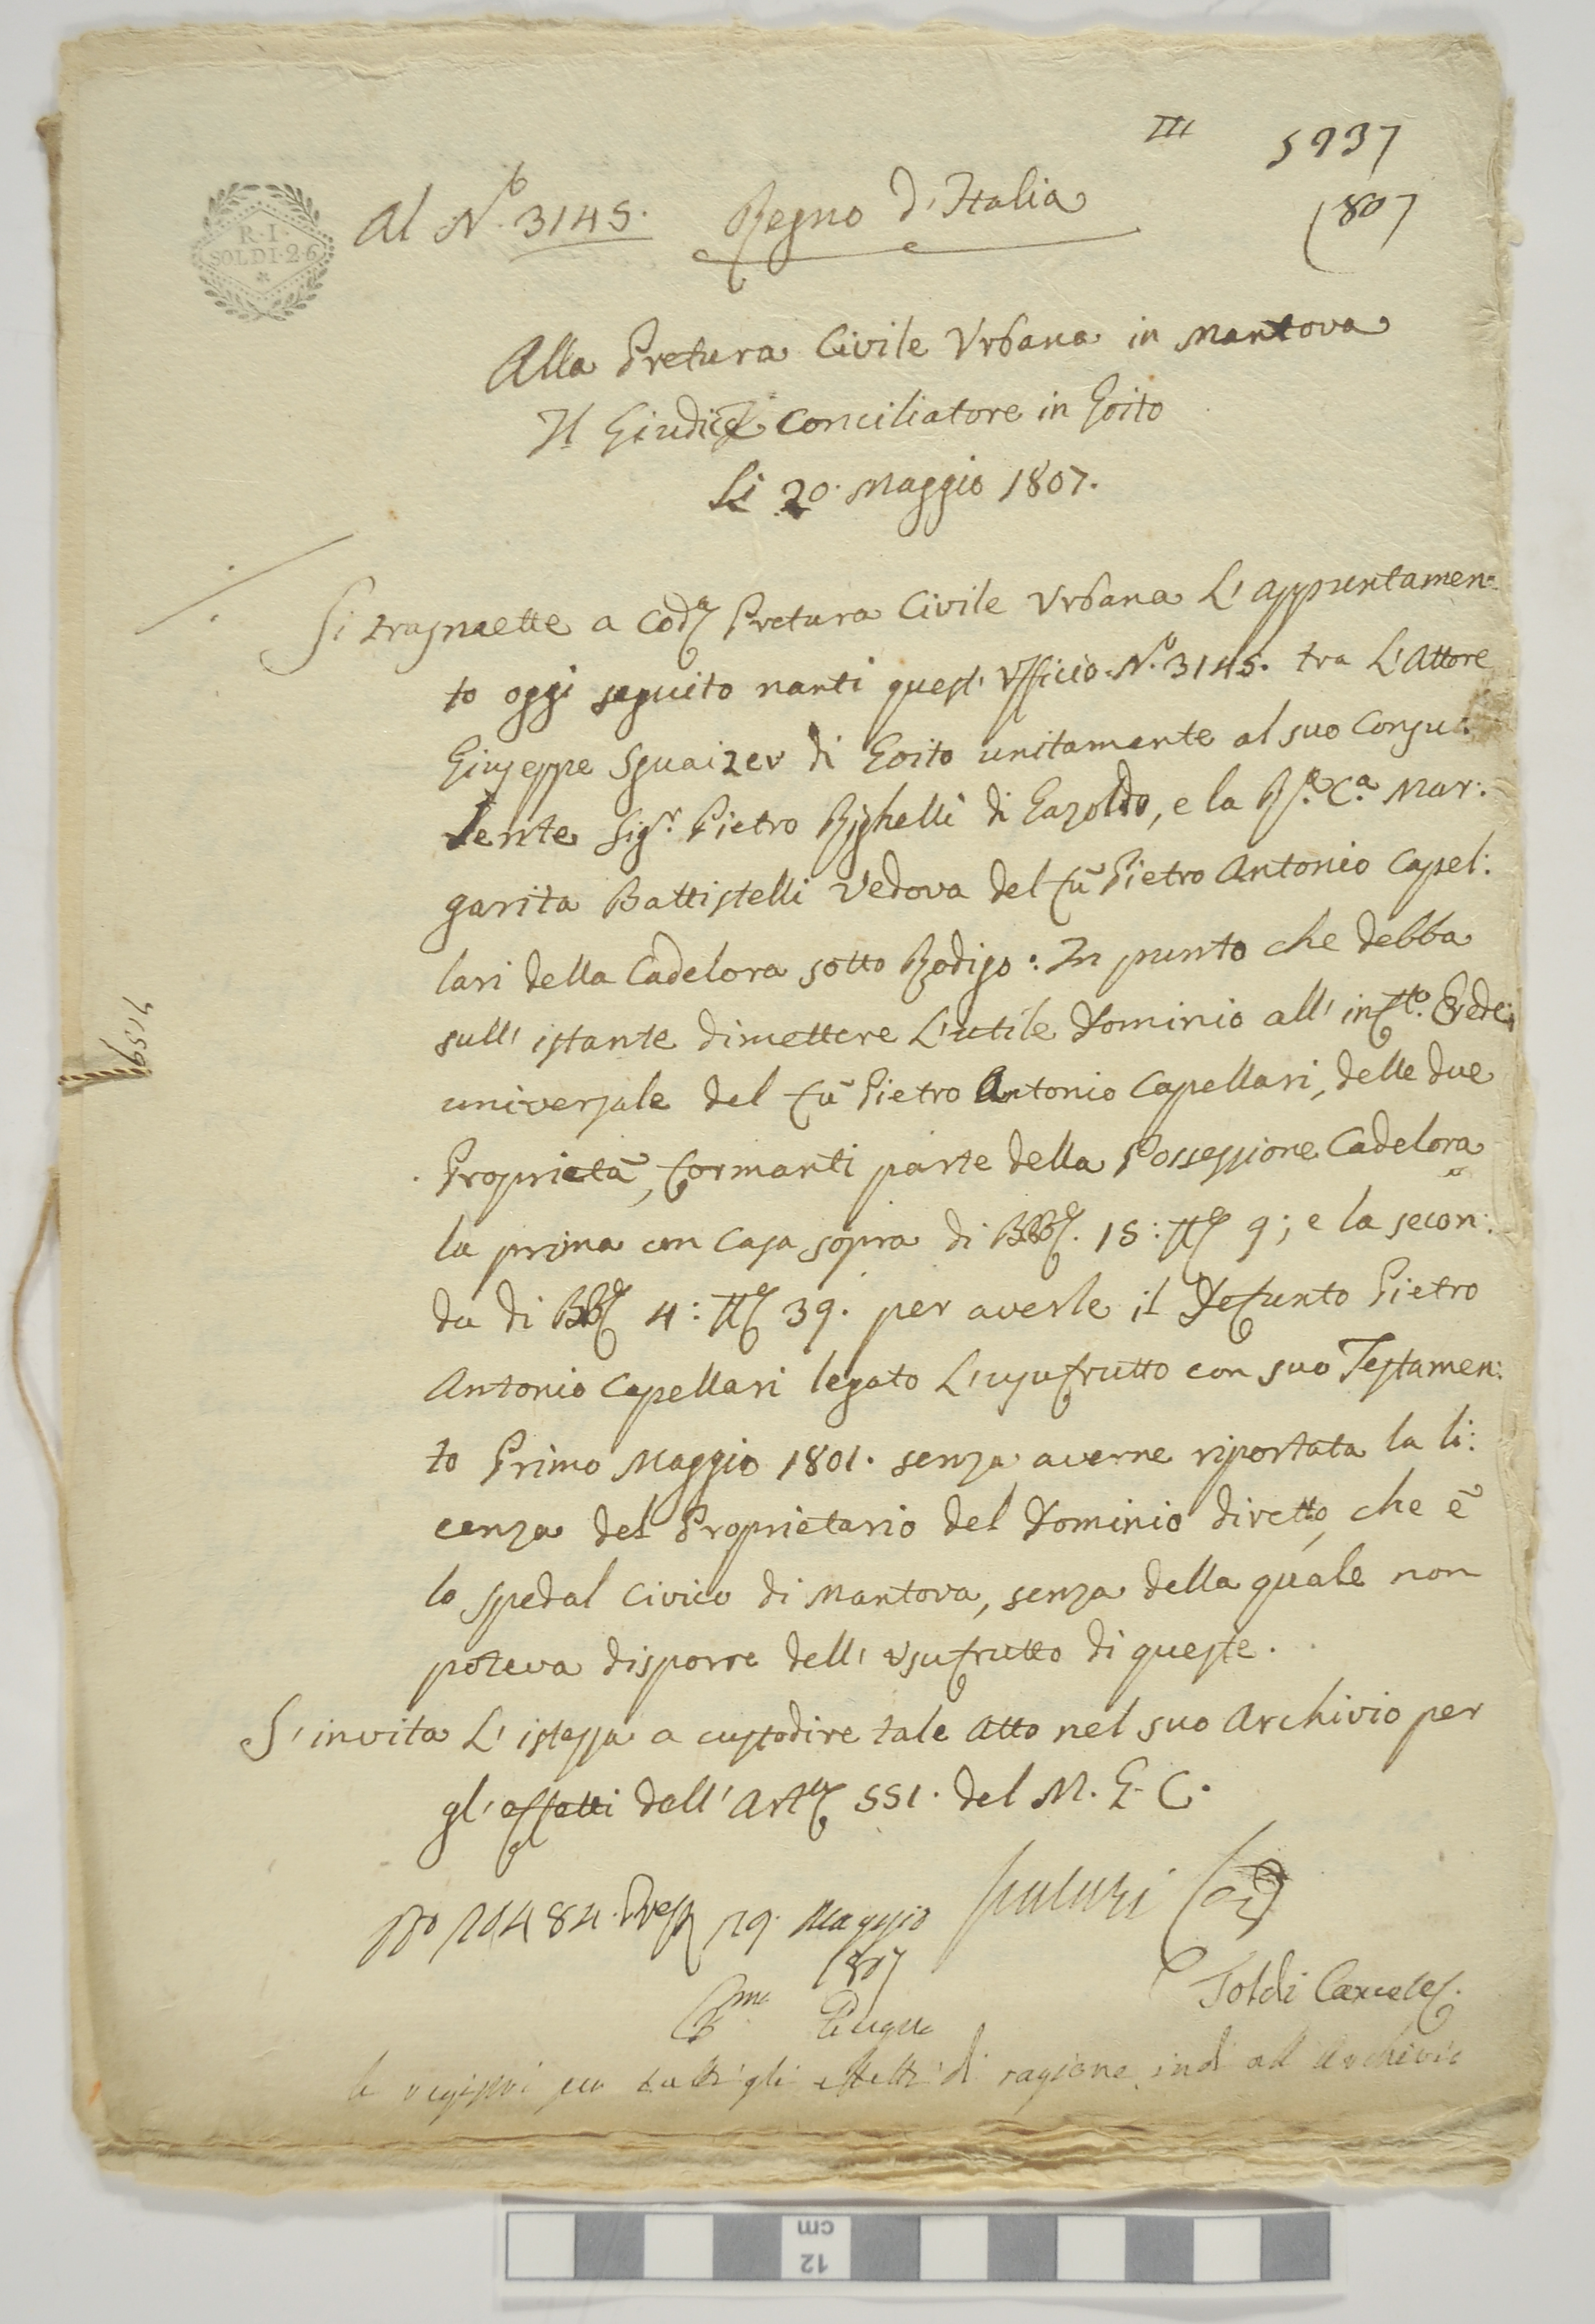 III 5937
1807
R. I.
SOLDI 26
Al N.º 3145. Regno d'Italia
Alla Pretura Civile Urbana in Mantova
Il Giudice Conciliatore in Goito
Li 20. Maggio 1807.
Si trasmette a Cod.ª Pretura Civile Urbana L'appuntamen:
to oggi seguito nanti quest'Ufficio N.º 3145. tra L'Attore
Giuseppe Sguaizer di Goito unitamente al suo Consu:
lente Sig.r Pietro Righelli di Gazoldo, e la R.ª C.ª Mar:
garita Battistelli Vedova del fù Pietro Antonio Capel:
lari della Cadelora sotto Rodigo: In punto che debba
sull'istante dimettere L'utile Dominio all' Erede
universale del fù Pietro Antonio Capellari, delle due
Proprietà, formanti parte della Possessione Cadelora
la prima con Casa sopra di 15: 9; e la secon:
da di 4: 39. per averle il Defunto Pietro
Antonio Capellari legato L'usufrutto con suo Testamen:
to Primo Maggio 1801. senza averne riportata la li:
cenza del Proprietario del Dominio diretto, che è
lo Spedal Civico di Mantova, senza della quale non
poteva disporre dell'Usufrutto di queste.
S'invita L'istessa a custodire tale Atto nel suo Archivio per
gl'effetti dell'Art. 551. del M. G. C.
N.º 10484. 29. Maggio
1807
Toldi Cancel.
per tutti gli effetti di ragione, indi all'Archivio
12
cm